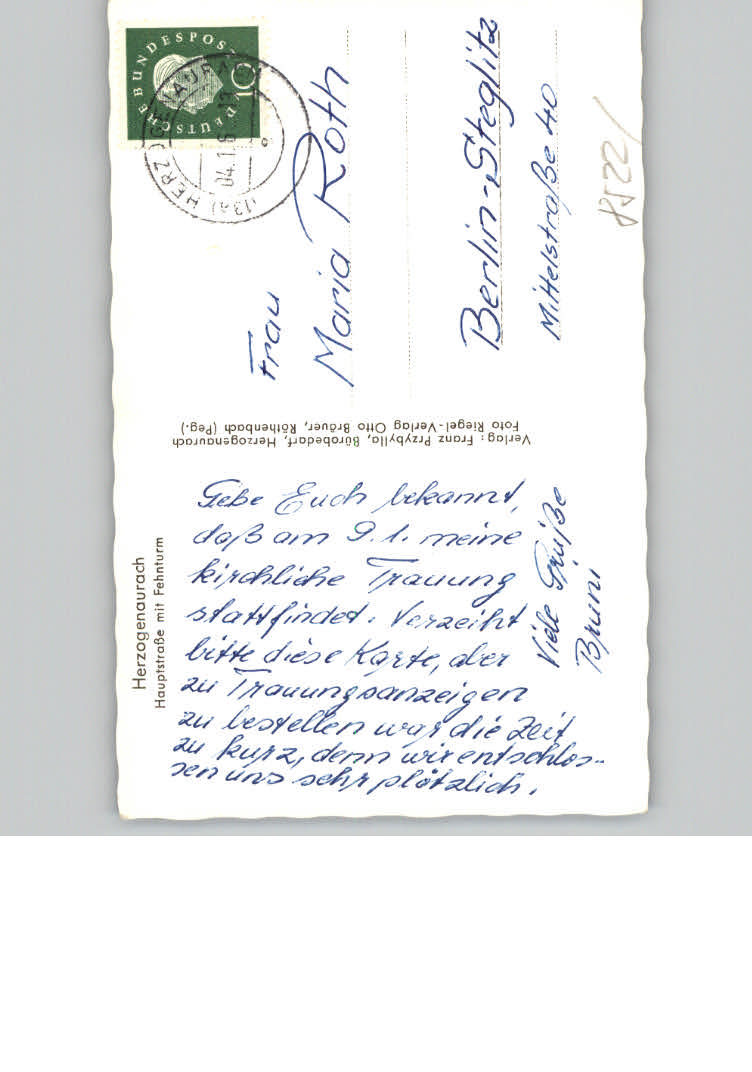 Herzogenaurach
Hauptstraße mit Fehnturm
Gebe Euch bekannt,
daß am 9. 1. meine
kirchliche Trauung
stattfindet. Verzeiht
bitte diese Karte, aber
zu Trauungsanzeigen
zu bestellen war die Zeit
zu kurz, denn wir entschlos-
sen uns sehr plötzlich.
Viele Grüße
Bruni
Verlag: Franz Przybylla, Bürobedarf, Herzogenaurach
Foto Riegel-Verlag Otto Bräuer, Röthenbach (Peg.)
DEUTSCHE BUNDESPOST
10
(13a) HERZOGENAURACH
Frau
Maria Roth
Berlin-Steglitz
Mittelstraße 40
8522/